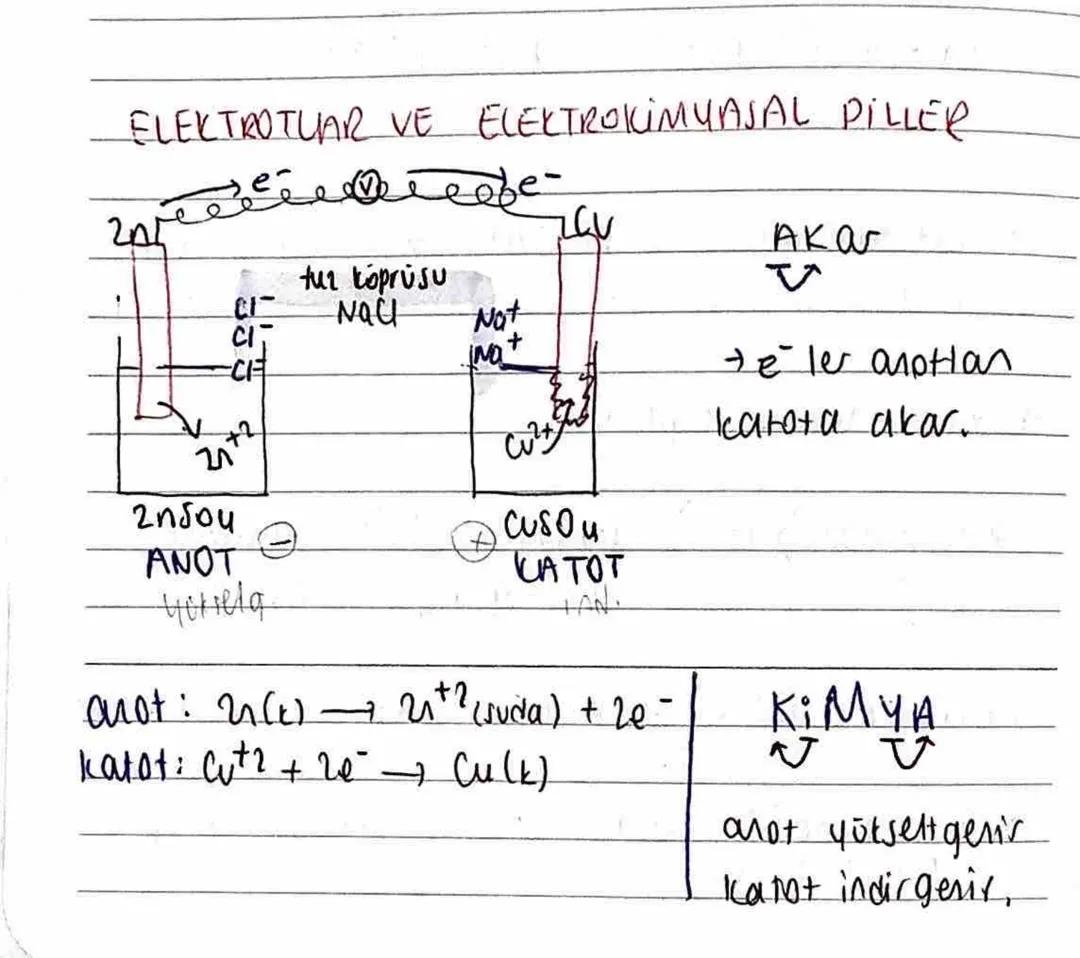 ELEKTROTLAR VE ELEKTROKİMYASAL PİLLER
e⁻ V e⁻
Zn Cu
AKar
tuz köprüsü
NaCl
Cl⁻
Cl⁻
Cl⁻
Na⁺
Na⁺
→ e⁻ ler anottan
katota akar.
Zn⁺²
Cu²⁺
ZnSO₄ ⊖
ANOT
yükselg.
⊕ CuSO₄
KATOT
ind.
anot: Zn(k) → Zn⁺²(suda) + 2e⁻
katot: Cu⁺² + 2e⁻ → Cu(k)
KİMYA
anot yükseltgenir
katot indirgenir.